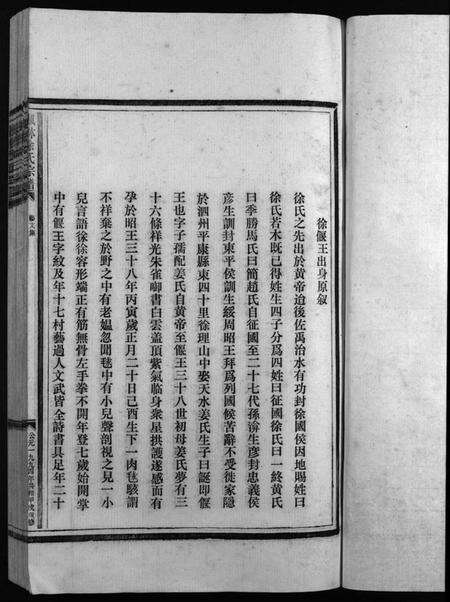 徐偃王出身原叙
徐氏之先出於黄帝迨後佐禹治水有功封徐國侯因地賜姓曰
徐氏若木既已得姓生四子分爲四姓曰征國徐氏曰一終黄氏
曰季勝馬氏曰簡趙氏自征國至二十七代孫諭生彦封忠義侯
彦生訓封東平侯訓生綏周昭王拜爲列國侯苦辭不受徙家隱
於泗州平康縣東四十里徐理山中娶天水姜氏生子曰誕即偃
王也字子孺配姜氏自黄帝至偃王三十八世初母姜氏夢有三
十六條祥光朱雀啣書白雲蓋頂紫氣臨身衆星拱護遂感而有
孕於昭王三十八年丙寅歲正月二十日己酉生下一肉毬駭謂
不祥棄之於野之中有老媪忽聞毬中有小兒聲剖視之見一小
兒言語後徐容形端正有筋無骨左手拳不開年登七歲始開掌
中有偃王字紋及年十七村藝過人文武皆全詩書具足年二十
徐氏宗譜
卷之
公元一九九四年